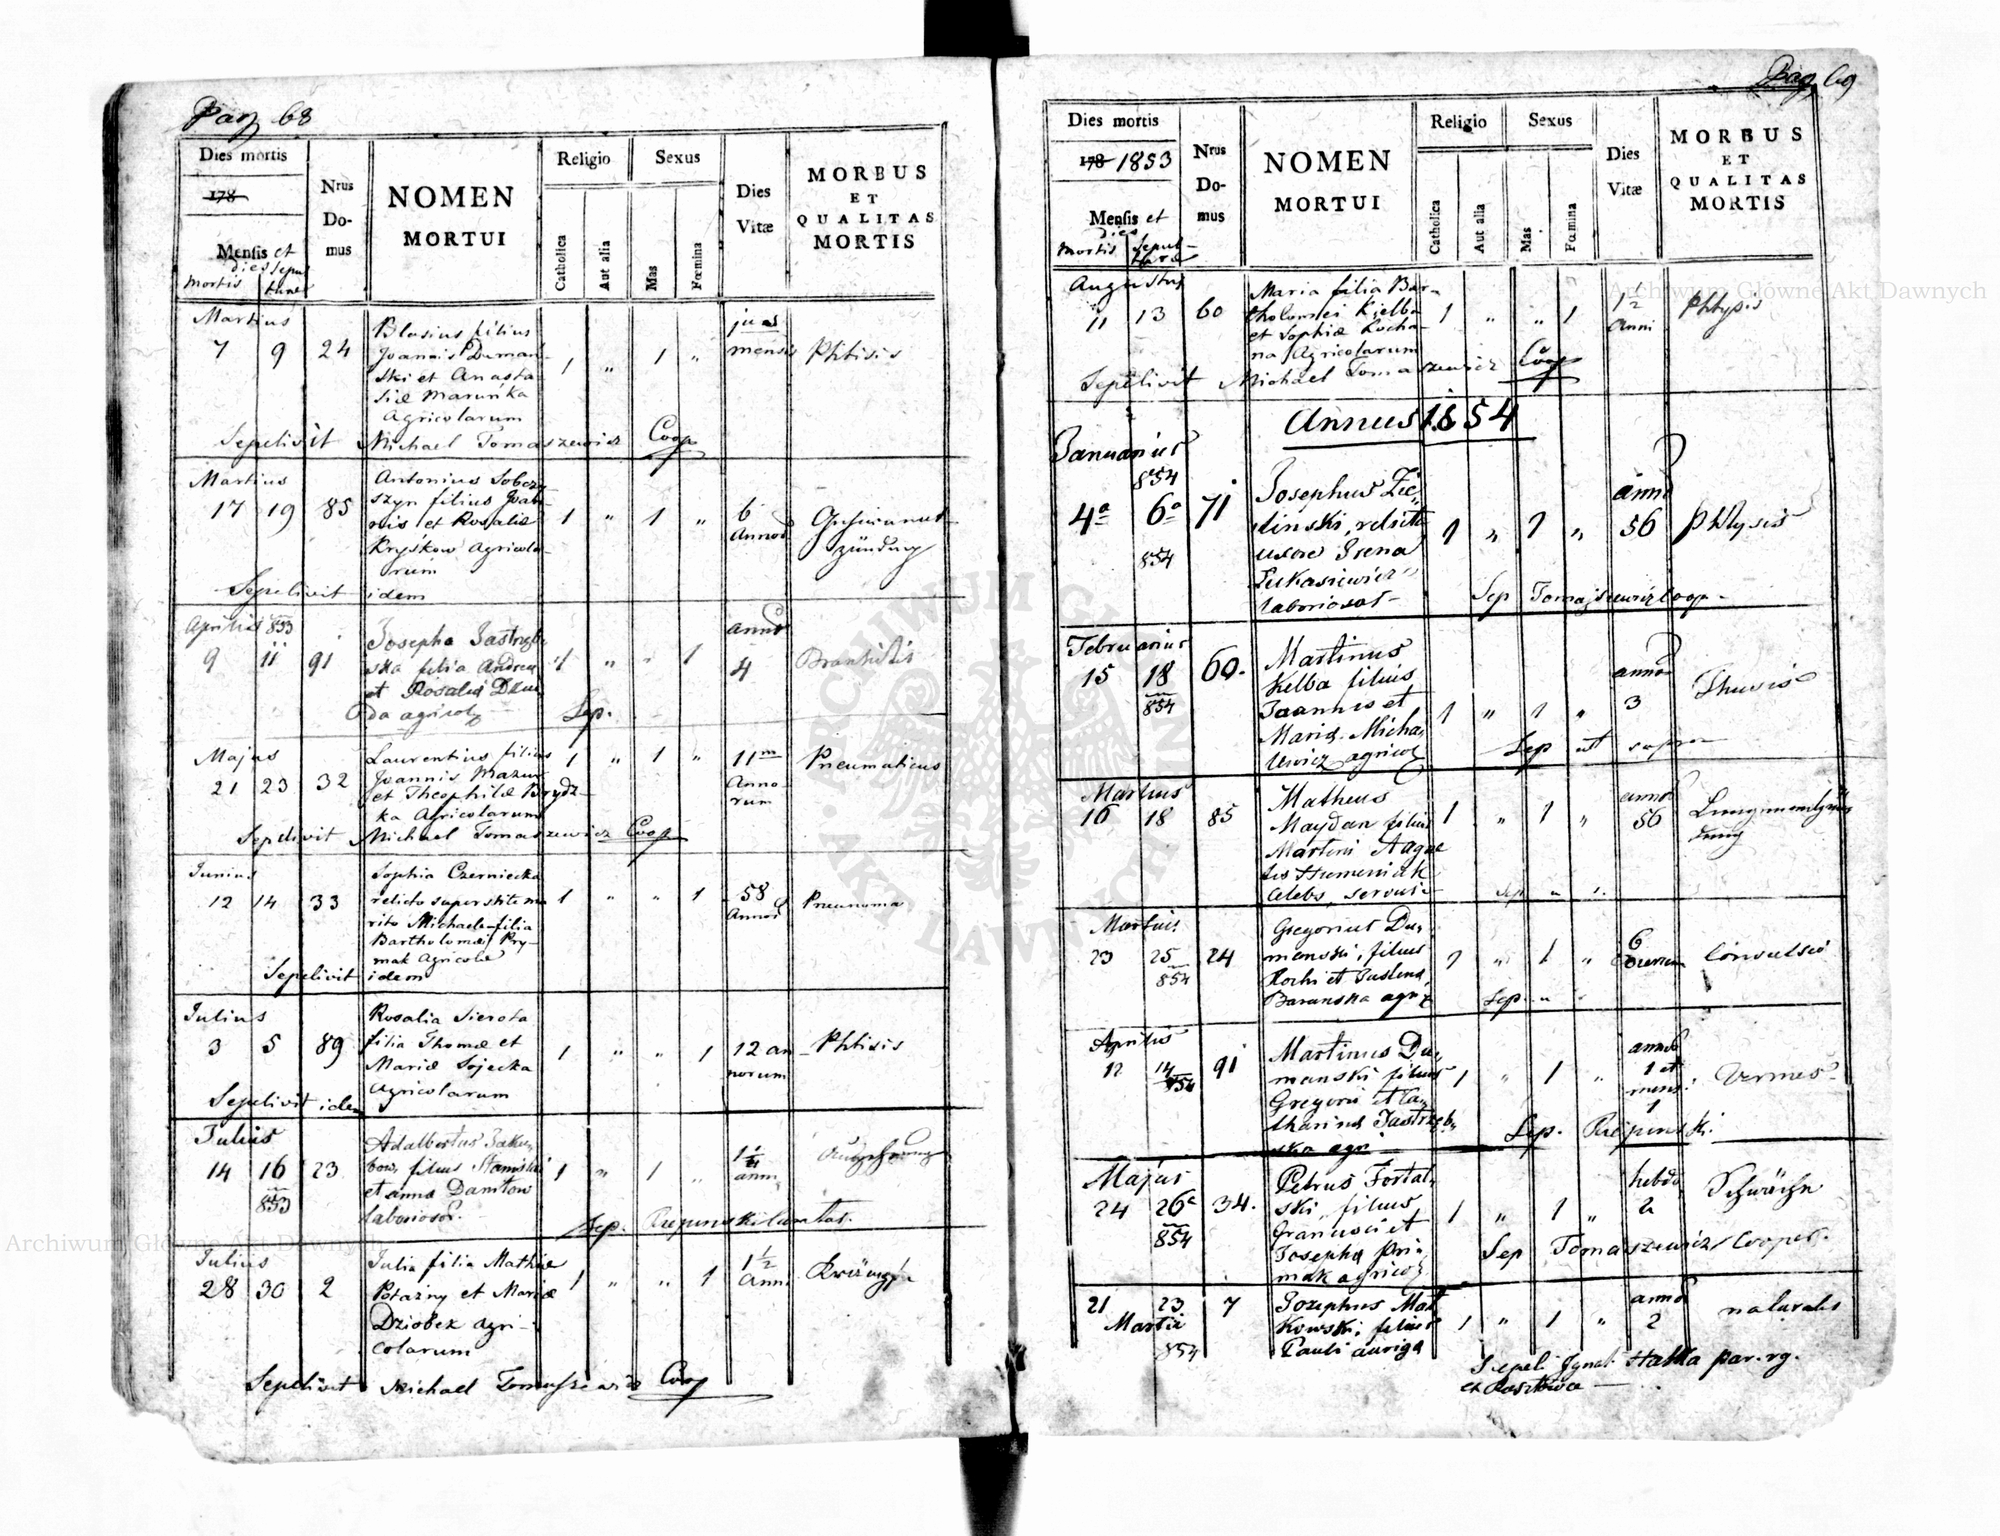 Pag 68
Dies mortis
178
Mensis et
dies sepul
mortis turae
Nrus
Do-
mus
NOMEN
MORTUI
Religio
Catholica
Aut alia
Sexus
Mas
Fœmina
Dies
Vitæ
MORBUS
ET
QUALITAS
MORTIS
Martius
7 9 24
Blasius filius
Joannis Duman-
ski et Anasta-
siæ Maruńka
Agricolarum
1 " 1 "
mensis
Phtisis
Sepelivit Michael Tomaszewicz Coop
Martius
17 19 85
Antonius Sobczy
szyn filius Joan-
nis et Rosaliæ
Kryśkow Agricola-
rum
1 " 1 "
6
Annor
zündung
Sepelivit idem
Aprilis 853
9 11 91
Josepha Jastrzęb-
ska filia Andreæ
et Rosaliæ
da agricol
1 " " 1
anno
4
Sep.
Majus
21 23 32
Laurentius filius
Joannis Mazur
et Theophilæ Brydz-
ka Agricolarum
1 " 1 "
11m
Anno-
rum
Pneumaticus
Sepelivit Michael Tomaszewicz Coop
Junius
12 14 33
Sophia Czerniecka
relicto superstite ma
rito Michaele filia
Bartholomæi Pry-
mak Agricolæ
1 " " 1
58
Annor
Pneunoma
Sepelivit idem
Julius
3 5 89
Rosalia Sierota
filia Thomæ et
Mariæ Sojecka
Agricolarum
1 " " 1
12 an-
norum
Phtisis
Sepelivit idem
Julius
14 16 23
853
Adalbertus Jaku-
bow, filius Stanislai
et annæ Daniłow
laboriosor.
1 " 1 "
anni
Sep. Rzepinski
Julius
28 30 2
Julia filia Mathiæ
Potażny et Mariæ
Dziobek agri-
colarum
1 " " 1
1 1/2
Anni
Sepelivit Michael Tomaszewicz Coop
Pag 69
Dies mortis
178 1853
Mensis et
dies
mortis Sepul-
turæ
Nrus
Do-
mus
NOMEN
MORTUI
Religio
Catholica
Aut alia
Sexus
Mas
Fœmina
Dies
Vitæ
MORBUS
ET
QUALITAS
MORTIS
Augustus
11 13 60
Maria filia Bar-
tholomei Kielba
et Sophiæ Kocha-
na Agricolarum
1 " " 1
1 1/2
Anni
Phtysis
Sepelivit Michael Tomaszewicz Coop
Annus 1854
Januarius
854
4a 6a 71
854
Josephus Zie-
linski, relicta
uxore Irena
Łukasiewicz
laborioso
1 " 1 "
anno
56
phtysis
Sep Tomaszewicz Coop.
Februarius
15 18 60.
854
Martinus
Kelba filius
Joannis et
Mariæ Micha-
lewicz agricol
1 " 1 "
anno
3
Sep ut supra
Martius
16 18 85
Matheus
Maydan filius
Martini et Agne
tis Humeniak
celebs, servus
1 " 1 "
anno
56
Sep " "
Martius
23 25 24
854
Gregorius Du-
manski, filius
Rochi et Justina
Baranska agri
1 " 1 "
6
Convulsio
Sep. "
Aprilis
12 14 91
854
Martinus Du-
manski filius
Gregorii et Ca-
tharina Jastrzęb-
ska agri
1 " 1 "
anno
1 et
mens.
1
Vermes
Sep. Rzepinski.
Majus
24 26a 34.
854
Petrus Fortal-
ski, filius
Francisci et
Josepha Pri-
mak agricol
1 " 1 "
hebdo
2
Schwäche
Sep Tomaszewicz Cooper.
21 23 7
Martii
854
Josephus Mał
kowski, filius
Pauli auriga
1 " 1 "
anno
2
naturalis
Sepeli Ignat. Hałka par. rg.
Archiwum Główne Akt Dawnych
Archiwum Główne Akt Dawnych
ARCHIWUM GŁÓWNE AKT DAWNYCH